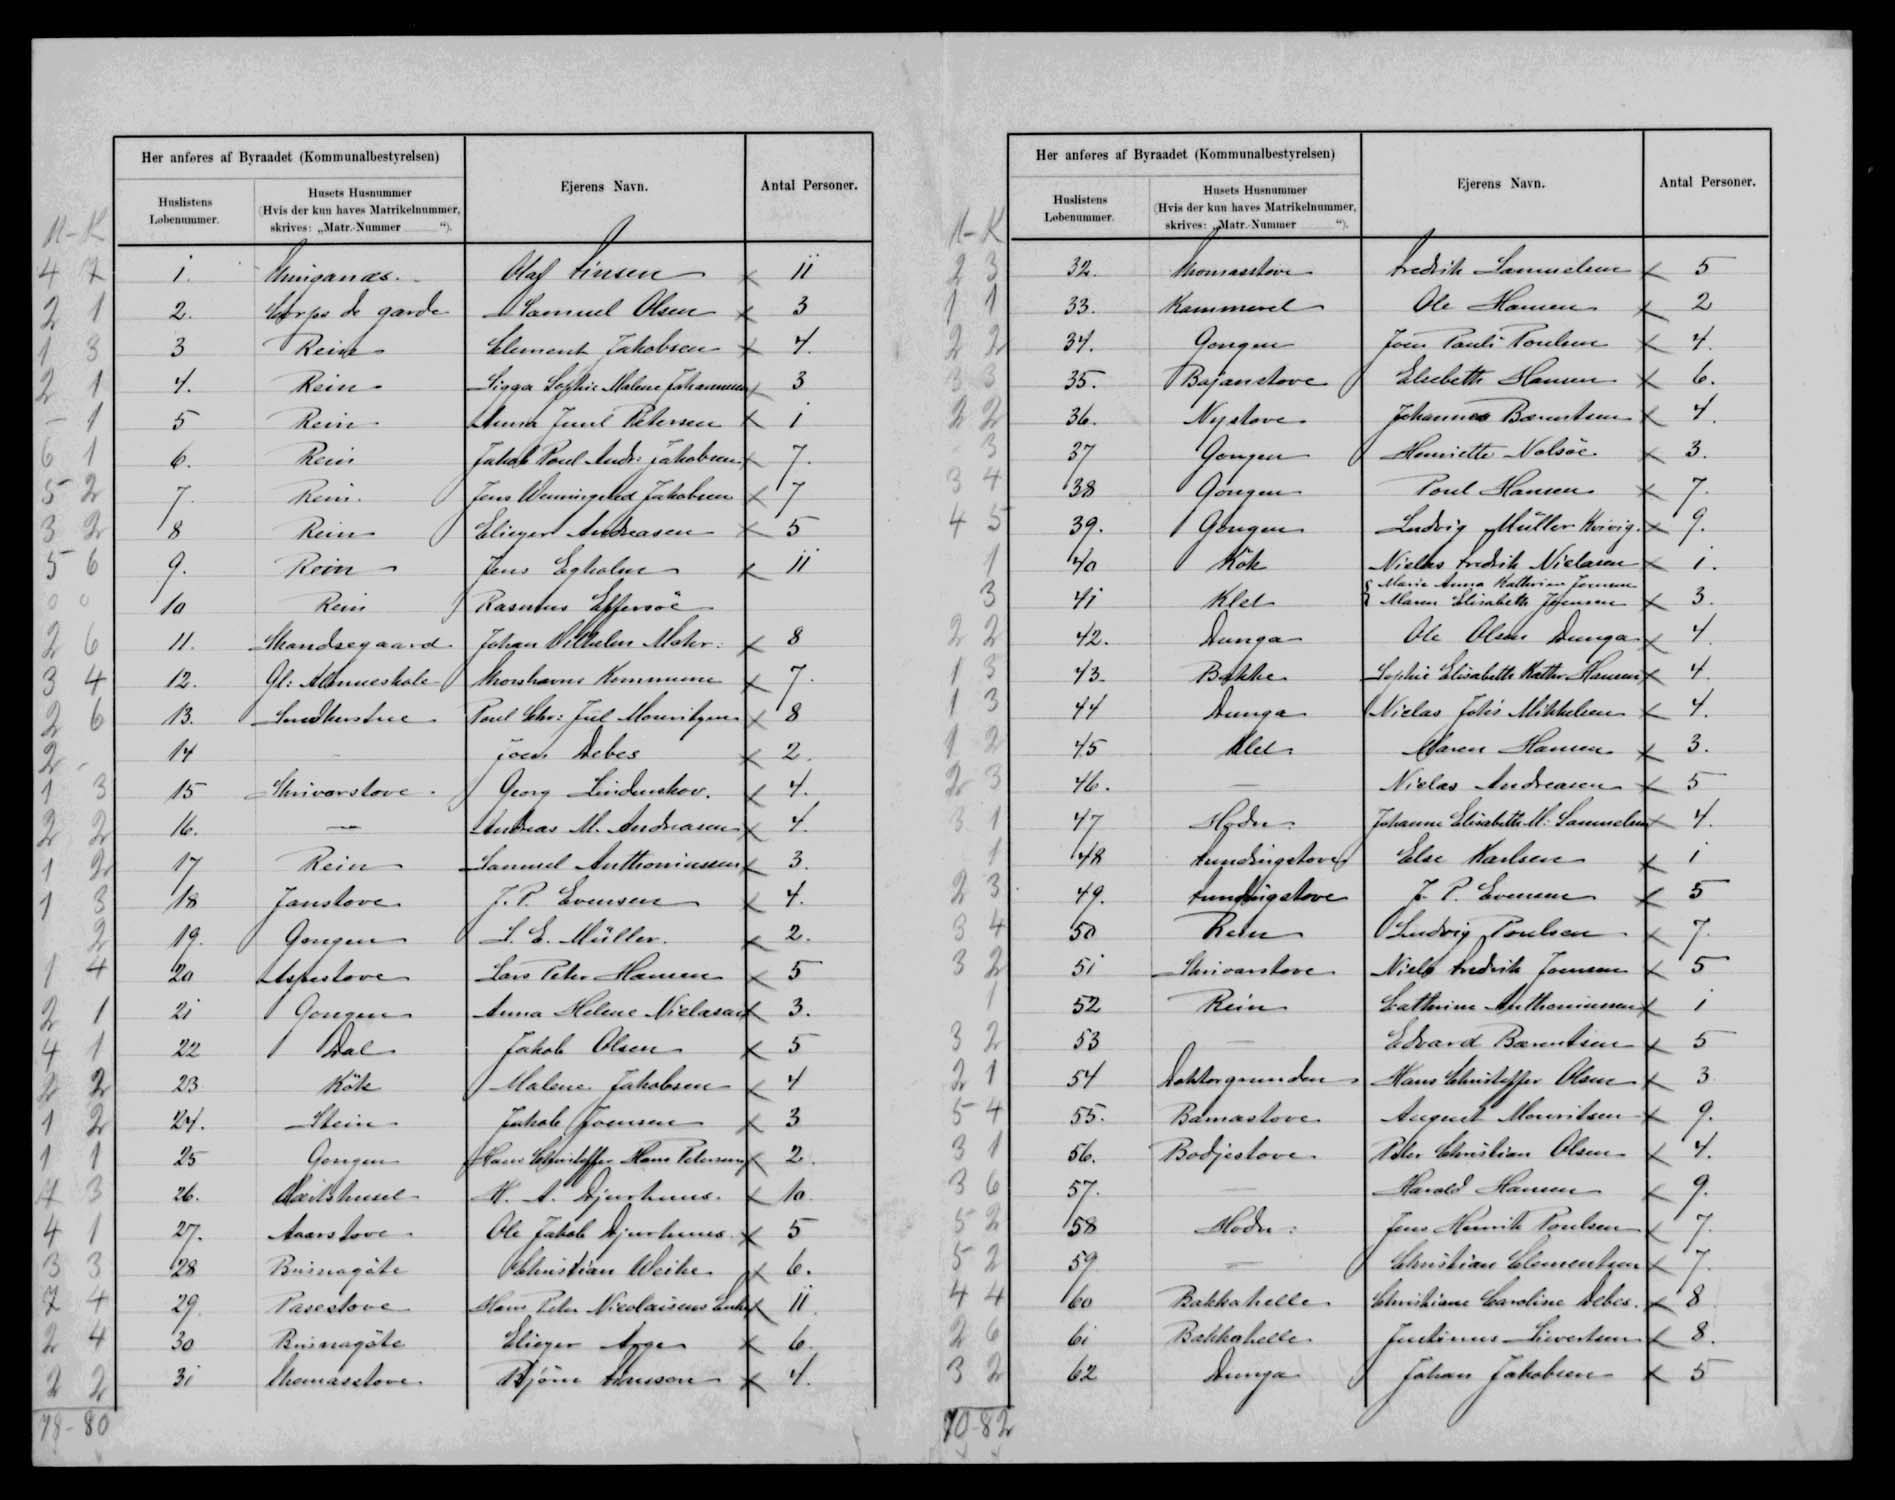 Her anføres af Byraadet (Kommunalbestyrelsen)
Huslistens Løbenummer.
Husets Husnummer (Hvis der kun haves Matrikelnummer, skrives: „Matr.-Nummer “).
Ejerens Navn.
Antal Personer.
M-K
4 7 1. Olaf Finsen x 11
2 1 2. Corps de garde Samuel Olsen x 3
1 3 3 Rein Clement Jakobsen x 4.
2 1 4. Rein Sigga Sophie Malene Johannesen x 3
- 1 5 Rein Anna Juul Petersen x 1
6 1 6. Rein Jakob Poul Andr: Jakobsen x 7.
5 2 7. Rein Jens Wenningsted Jakobsen x 7
3 2 8 Rein Eliezer Andreasen x 5
5 6 9. Rein Jens Egholm x 11
0 0 10 Rein Rasmus Effersöe
2 6 11. Strandsegaard Johan Vilhelm Mohr: x 8
3 4 12. Gl: Almueskole Thorshavns Kommune x 7.
2 6 13. Poul Chr: Jul Mouritzen x 8
2 - 14 — Joen Debes x 2.
1 3 15 Skrivarstove Georg Lindenskov. x 4.
2 2 16. — Andreas M. Andreasen x 4.
1 2 17 Rein Samuel Anthoniussen x 3.
1 3 18 Janstove J. P. Evensen x 4.
2 19. Gongen S. E. Müller. x 2.
1 4 20 Aspestove Lars Peter Hansen x 5
2 1 21 Gongen Anna Helene Nielasen x 3.
4 1 22 Dal Jakob Olsen x 5
2 2 23 Kök Malene Jakobsen x 4
1 2 24. Stein Jakob Joensen x 3
1 1 25 Gongen Hans Christoffer Hans Petersen x 2.
4 3 26. H. A. Djurhuus. x 10
4 1 27. Aarstove Ole Jakob Djurhuus x 5
3 3 28 Bringsnagöte Christian Weihe x 6.
7 4 29. Pasestove Hans Peter Nicolaisens Enke x 11.
2 4 30 Eliezer Arge x 6.
2 2 31 Thomasstove Björn x 4.
78-80
Her anføres af Byraadet (Kommunalbestyrelsen)
Huslistens Løbenummer.
Husets Husnummer (Hvis der kun haves Matrikelnummer, skrives: „Matr.-Nummer “).
Ejerens Navn.
Antal Personer.
M-K
2 3 32. Thomasstove Fredrik Samuelsen x 5
1 1 33. Kammeret Ole Hansen x 2
2 2 34. Gongen Joen Pauli Poulsen x 4.
3 3 35. Bajanstove Elsebeth Hansen x 6.
2 2 36. Nystove Johannes Bærentsen x 4.
3 37 Gongen Henriette Nolsöe x 3.
3 4 38 Gongen Poul Hansen x 7.
4 5 39. Gongen Ludvig Müller Kvivig. x 9.
1 40 Kök Nielas Fredrik Nielasen x 1.
3 41 Klet Marie Anna Kathrine Joensen
Maren Elisabeth Joensen x 3.
2 2 42. Dunga Ole Olsen Dunga x 4
1 3 43. Bakke Sophie Elisabeth Kathr. Hansen x 4.
1 3 44 Dunga Nielas Johs Mikkelsen x 4.
1 2 45 Klet Maren Hansen x 3.
2 3 46. — Nielas Andreasen x 5
3 1 47 Johanne Elisabeth M: Samuelsen x 4.
1 48 Else Karlsen x 1
2 3 49. J. P. Evensen x 5
3 4 50 Rein Ludvig Poulsen x 7.
3 2 51 Skrivarstove Niels Fredrik Joensen x 5
1 52 Rein Cathrine Anthoniussen x 1
3 2 53 — Edvard Bærentsen x 5
2 1 54 Doktorgrunden Hans Christoffer Olsen x 3
5 4 55. Bamastove August Mouritsen x 9.
3 1 56. Bodjestove Peter Christian Olsen x 4.
3 6 57. — Harald Hansen x 9.
5 2 58 Jens Henrik Poulsen x 7.
5 2 59 — Christian Clementsen x 7.
4 4 60 Bakkahelle Christiane Caroline Debes. x 8
2 6 61 Bakkahelle Justinus Sivertsen x 8.
3 2 62 Dunga Johan Jakobsen x 5
70-82